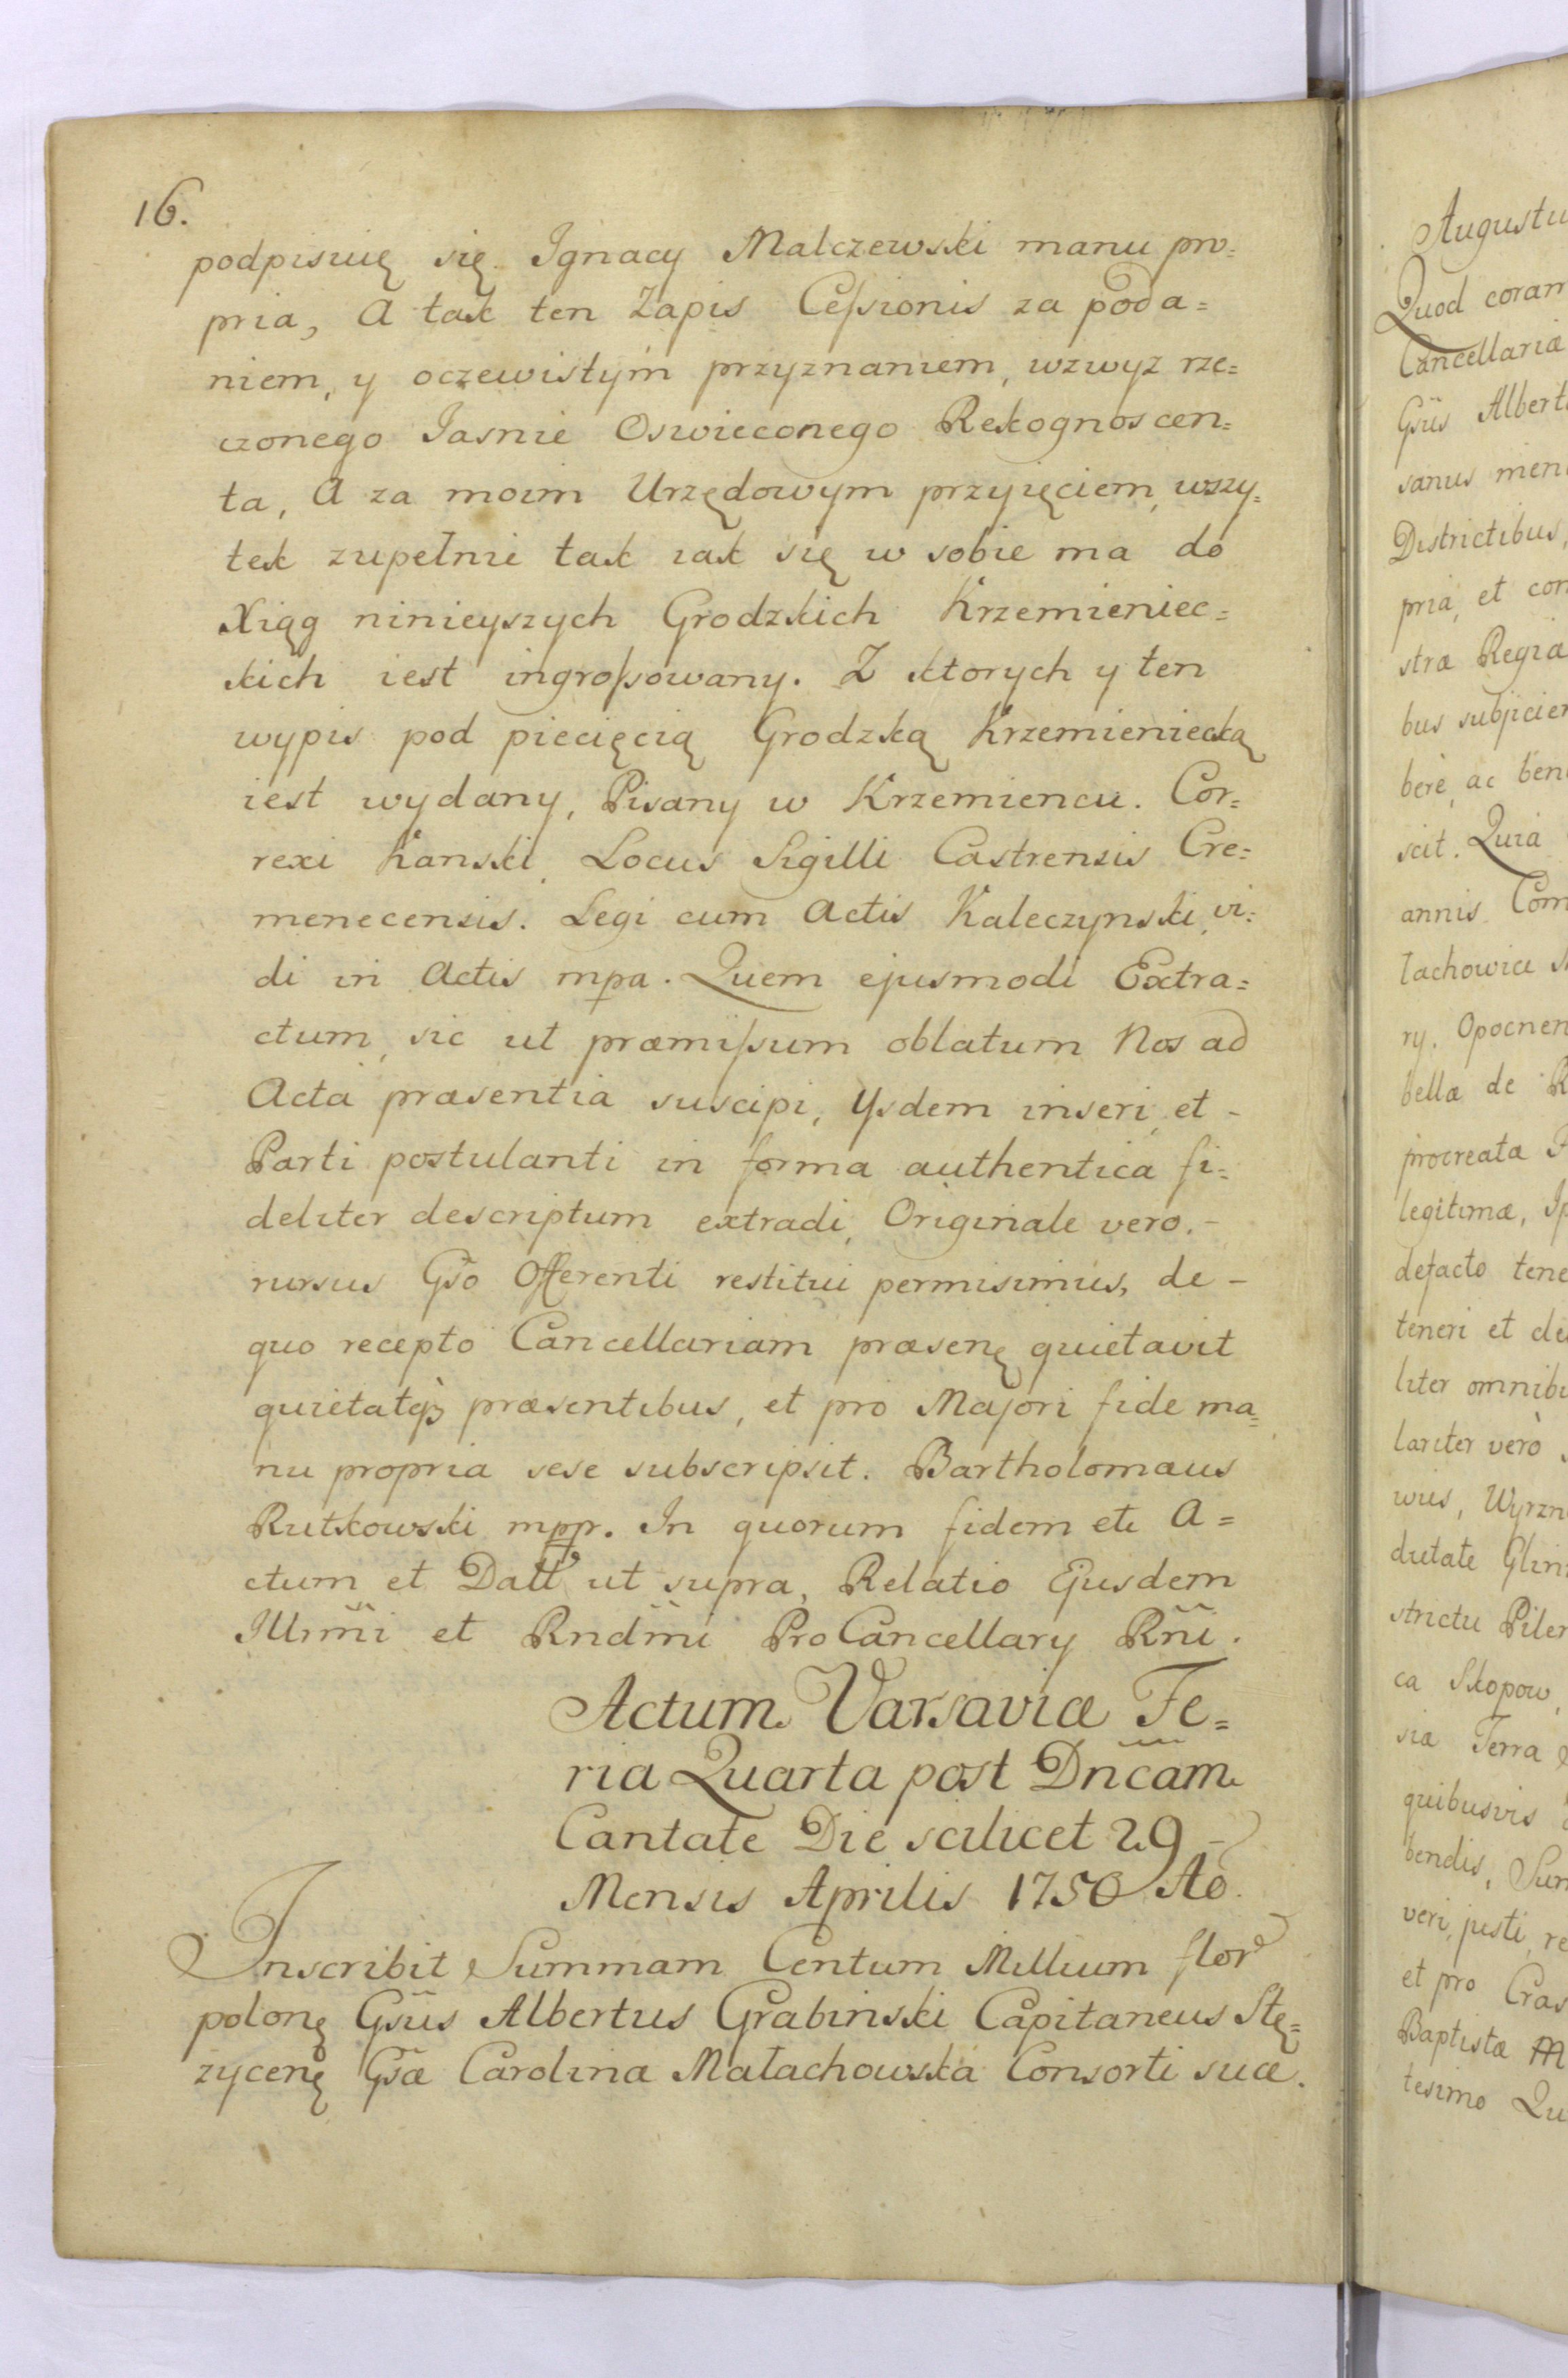 16.
podpisuię się Ignacy Malczewski manu pro=
pria, A tak ten Zapis Cessionis za poda=
niem, y oczewistym przyznaniem, wzwyz rze=
czonego Jasnie Oswieconego Rekognoscen=
ta, A za moim Urzędowym przyięciem, wszy=
tek zupełnie tak iak się w sobie ma do
Xiąg ninieyszych Grodzkich Krzemieniec=
kich iest ingrossowany. Z ktorych y ten
wypis pod piecięcią Grodzką Krzemieniecką
iest wydany, Pisany w Krzemiencu. Cor=
rexi Kanski, Locus Sigilli Castrensis Cre=
menecensis. Legi cum Actis Kaleczynski, vi=
di in Actis mpa. Quem ejusmodi Extra=
ctum, sic ut præmissum oblatum Nos ad
Acta præsentia suscipi, Ysdem inseri, et -
Parti postulanti in forma authentica fi=
deliter descriptum extradi, Originale vero. -
rursus Gso Offerenti restitui permisimus, de -
quo recepto Cancellariam præsenę quietavit
quietatqꝫ præsentibus, et pro Majori fide ma=
nu propria sese subscripsit. Bartholomæus
Rutkowski mppr. In quorum fidem etc A=
ctum et Datt ut supra, Relatio Ejusdem
Illm̃i et Rndm̃i ProCancellary Rñi.
Actum Varsaviæ Fe=
ria Quarta post Dñcam
Cantate Die scilicet 29 -
Mensis Aprilis 1750 Ao.
Inscribit Summam Centum Millium flor
polonę Gsũs Albertus Grabinski Capitaneus Stę=
zycenę Gsæ Carolina Małachowska Consorti suæ.
Augustu
Quod coram
Cancellariæ
Gsũs Albert
sanus men
Districtibus,
pria, et con
stræ Regiæ
bus subjicien
berè, ac ben
scit. Quia
annis Com
łachowice
ry. Opocnen
bellæ de R
procreata F
legitimæ, Ip
defacto tene
teneri et de
liter omnibu
lariter verò
wies, Wyrzn
dietate Glin
strictu Pilen
ca Skopow,
siæ Terra
quibusvis
bendis, Sum
veri, justi, re
et pro Cras
Baptistæ M
tesimo Qu